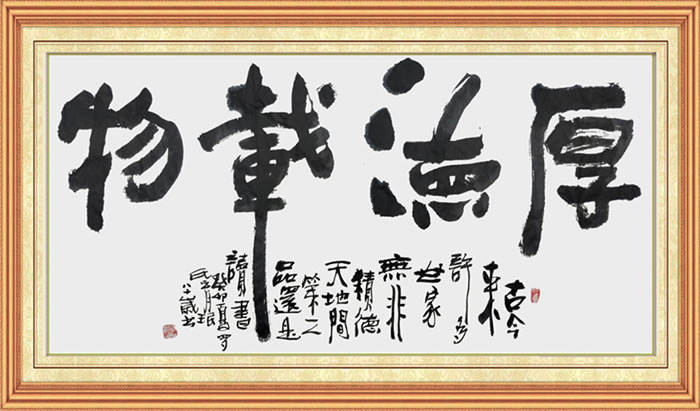 厚德載物
古今
來
許多
世家
無非
積德
天地間
第一人
品還是
讀書
癸卯夏